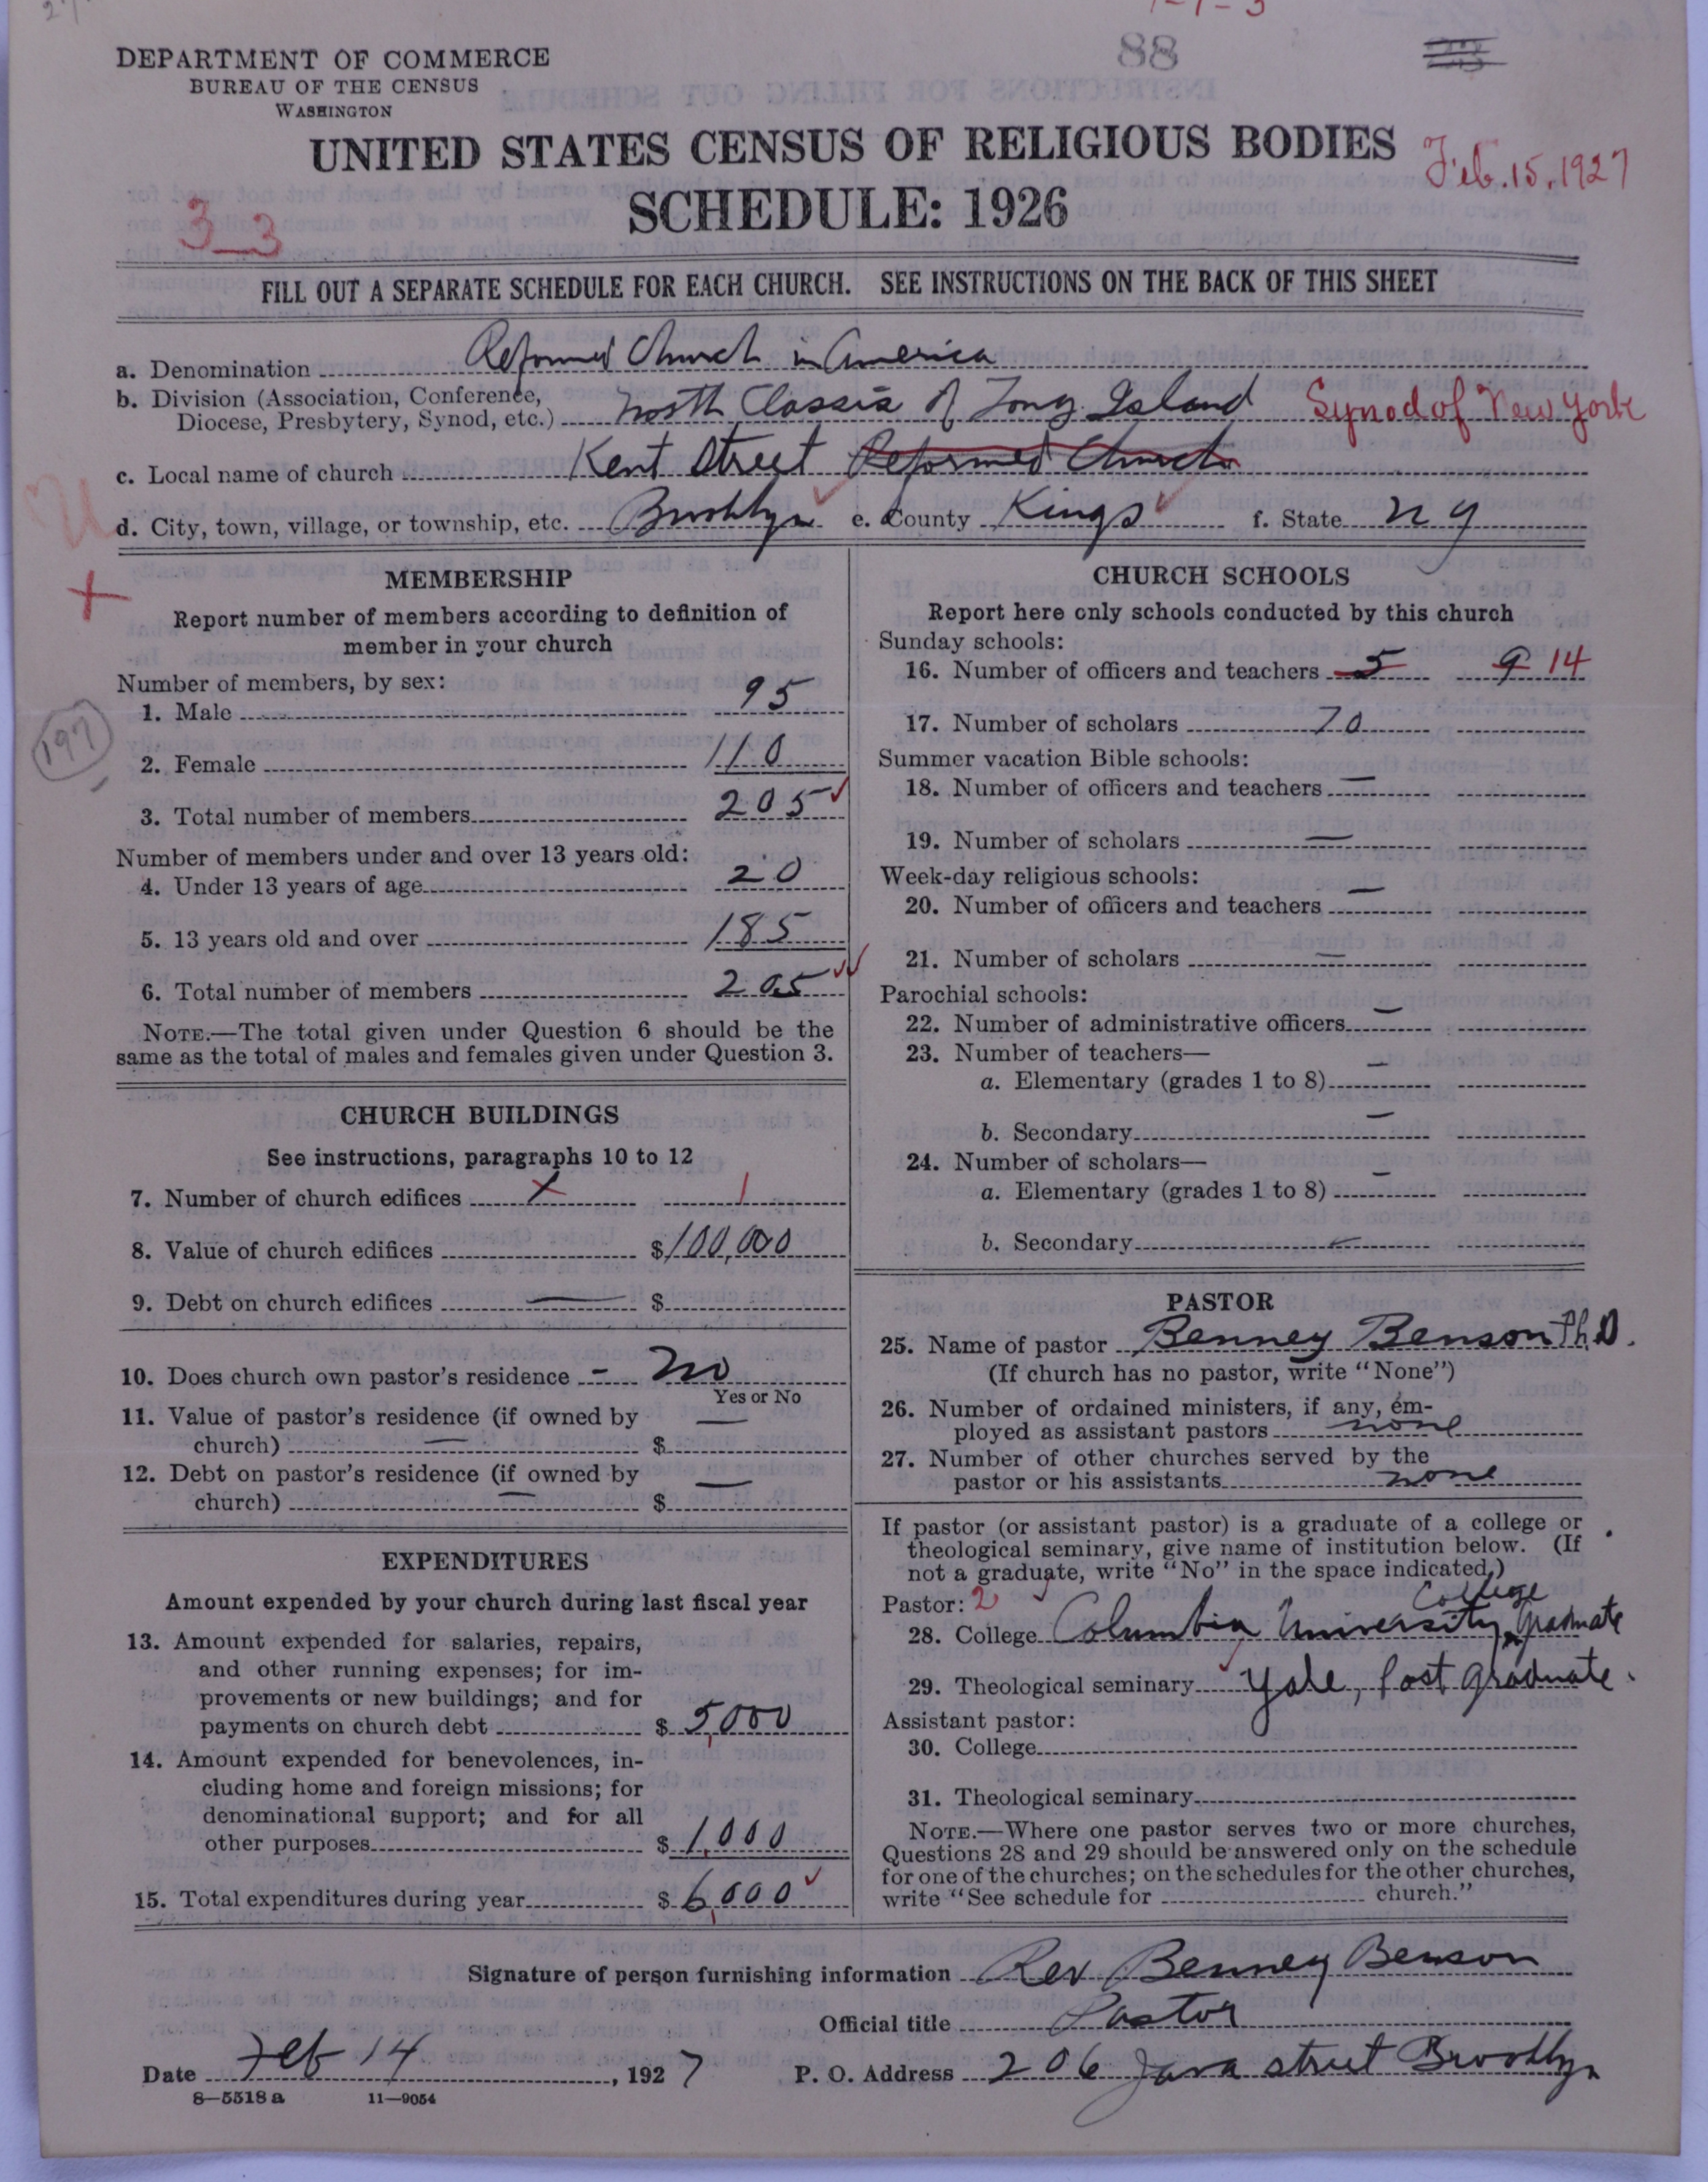 88
DEPARTMENT OF COMMERCE
BUREAU OF THE CENSUS
WASHINGTON
UNITED STATES CENSUS OF RELIGIOUS BODIES
Feb. 15, 1927
SCHEDULE: 1926
3_3
FILL OUT A SEPARATE SCHEDULE FOR EACH CHURCH. SEE INSTRUCTIONS ON THE BACK OF THIS SHEET
a. Denomination Reformed Church in America
b. Division (Association, Conference,
Diocese, Presbytery, Synod, etc.) North Classis of Long Island Synod of New York
c. Local name of church Kent Street Reformed Church
d. City, town, village, or township, etc. Brooklyn e. County Kings f. State N Y
MEMBERSHIP
Report number of members according to definition of
member in your church
Number of members, by sex:
1. Male 95
197
2. Female 110
3. Total number of members 205
Number of members under and over 13 years old:
4. Under 13 years of age 20
5. 13 years old and over 185
6. Total number of members 205
NOTE.—The total given under Question 6 should be the
same as the total of males and females given under Question 3.
CHURCH BUILDINGS
See instructions, paragraphs 10 to 12
7. Number of church edifices 1
8. Value of church edifices $100,000
9. Debt on church edifices — $
10. Does church own pastor's residence - No
Yes or No
11. Value of pastor's residence (if owned by —
church) — $
12. Debt on pastor's residence (if owned by —
church) — $
EXPENDITURES
Amount expended by your church during last fiscal year
13. Amount expended for salaries, repairs,
and other running expenses; for im-
provements or new buildings; and for
payments on church debt $ 5,000
14. Amount expended for benevolences, in-
cluding home and foreign missions; for
denominational support; and for all
other purposes $ 1,000
15. Total expenditures during year $ 6,000
CHURCH SCHOOLS
Report here only schools conducted by this church
Sunday schools:
16. Number of officers and teachers 5 9 14
17. Number of scholars 70
Summer vacation Bible schools:
18. Number of officers and teachers —
19. Number of scholars —
Week-day religious schools:
20. Number of officers and teachers —
21. Number of scholars —
Parochial schools:
22. Number of administrative officers —
23. Number of teachers—
a. Elementary (grades 1 to 8) —
b. Secondary —
24. Number of scholars—
a. Elementary (grades 1 to 8) —
b. Secondary —
PASTOR
25. Name of pastor Benney Benson Ph.D.
(If church has no pastor, write "None")
26. Number of ordained ministers, if any, em-
ployed as assistant pastors none
27. Number of other churches served by the
pastor or his assistants none
If pastor (or assistant pastor) is a graduate of a college or
theological seminary, give name of institution below. (If
not a graduate, write "No" in the space indicated.)
Pastor: 2
College
28. College Columbia University Graduate
29. Theological seminary Yale, Post graduate.
Assistant pastor:
30. College
31. Theological seminary
NOTE.—Where one pastor serves two or more churches,
Questions 28 and 29 should be answered only on the schedule
for one of the churches; on the schedules for the other churches,
write "See schedule for church."
Signature of person furnishing information Rev Benney Benson
Official title Pastor
Date Feb 14, 1927 P. O. Address 206 Java street Brooklyn
8—5518 a 11—9054